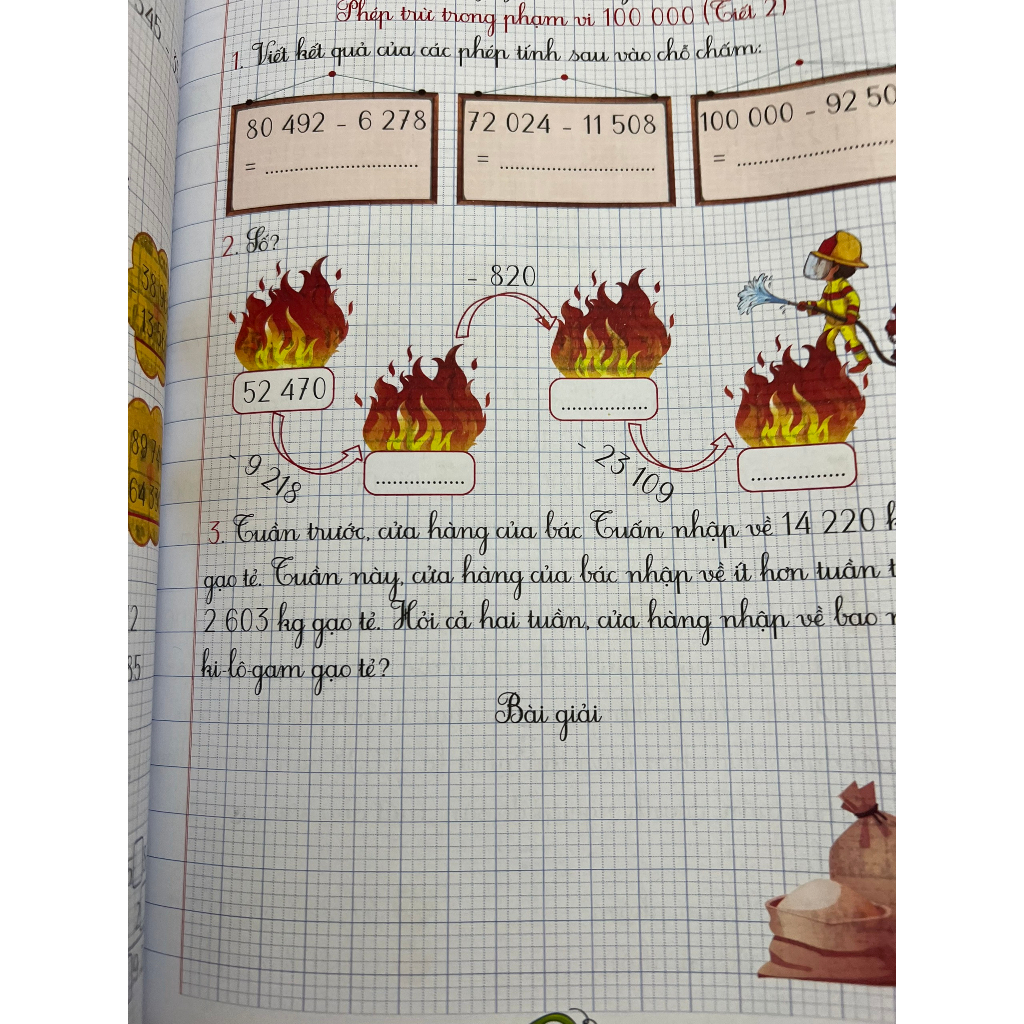 Phép trừ trong phạm vi 100 000 (Tiết 2)
1. Viết kết quả của các phép tính sau vào chỗ chấm:
80 492 - 6 278
= ........................
72 024 - 11 508
= ........................
100 000 - 92 50
= ........................
2. Số?
- 820
52 470
..................
..................
..................
- 9 218
- 23 109
3. Tuần trước, cửa hàng của bác Tuấn nhập về 14 220
gạo tẻ. Tuần này, cửa hàng của bác nhập về ít hơn tuần
2 603 kg gạo tẻ. Hỏi cả hai tuần, cửa hàng nhập về bao
ki-lô-gam gạo tẻ?
Bài giải